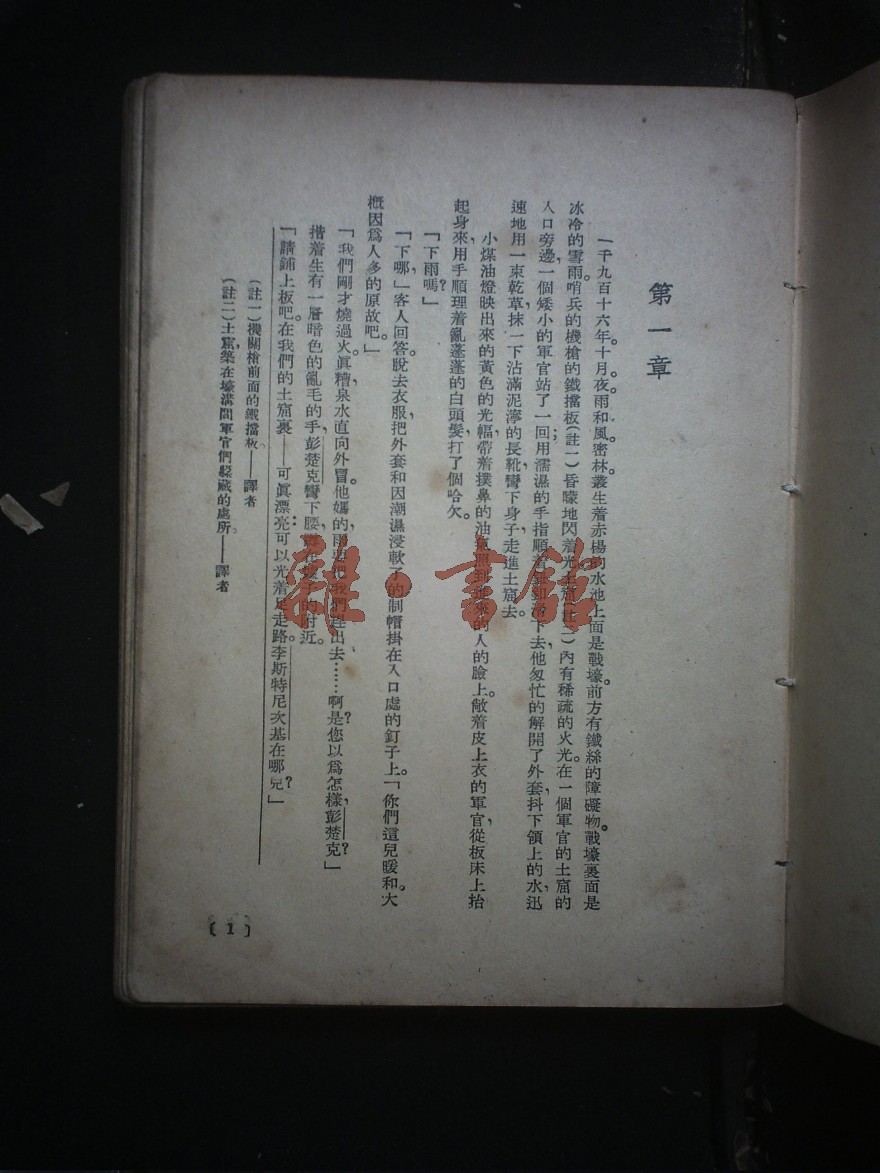 第一章
一千九百十六年。十月。夜。雨和風。密林。叢生着赤楊的水池上面是戰壕。前方有鐵絲的障礙物。戰壕裏面是
冰冷的雪雨。哨兵的機槍的鐵擋板(註一)昏曚地閃着光。土窟(註二)內有稀疏的火光。在一個軍官的土窟的
入口旁邊一個矮小的軍官站了一回;用濡濕的手指順着 下去,他匆忙的解開了外套,抖下領上的水,迅
速地用一束乾草抹一下沾滿泥濘的長靴,彎下身子走進土窟去。
小煤油燈映出來的黃色的光幅,帶着撲鼻的油 照到進來的人的臉上。敞着皮上衣的軍官從板床上抬
起身來,用手順理着亂蓬蓬的白頭髮,打了個哈欠。
「下雨嗎?」
「下哪,」客人回答,脫去衣服,把外套和因潮濕浸軟了的制帽掛在入口處的釘子上。「你們這兒暖和。大
概因爲人多的原故吧。」
「我們剛才燒過火。眞糟,泉水直向外冒。他媽的,雨要把我們趕出去……啊?是您以爲怎樣,彭楚克?」
搓着生有一層暗色的亂毛的手,彭楚克彎下腰, 的附近。
「請鋪上板吧。在我們的土窟裏——可眞漂亮:可以光着足走路。李斯特尼次基在哪兒?」
(註一)機關槍前面的鐵擋板。——譯者
(註二)土窟,築在壕溝間軍官們躲藏的處所。——譯者
〔1〕
雜·書館